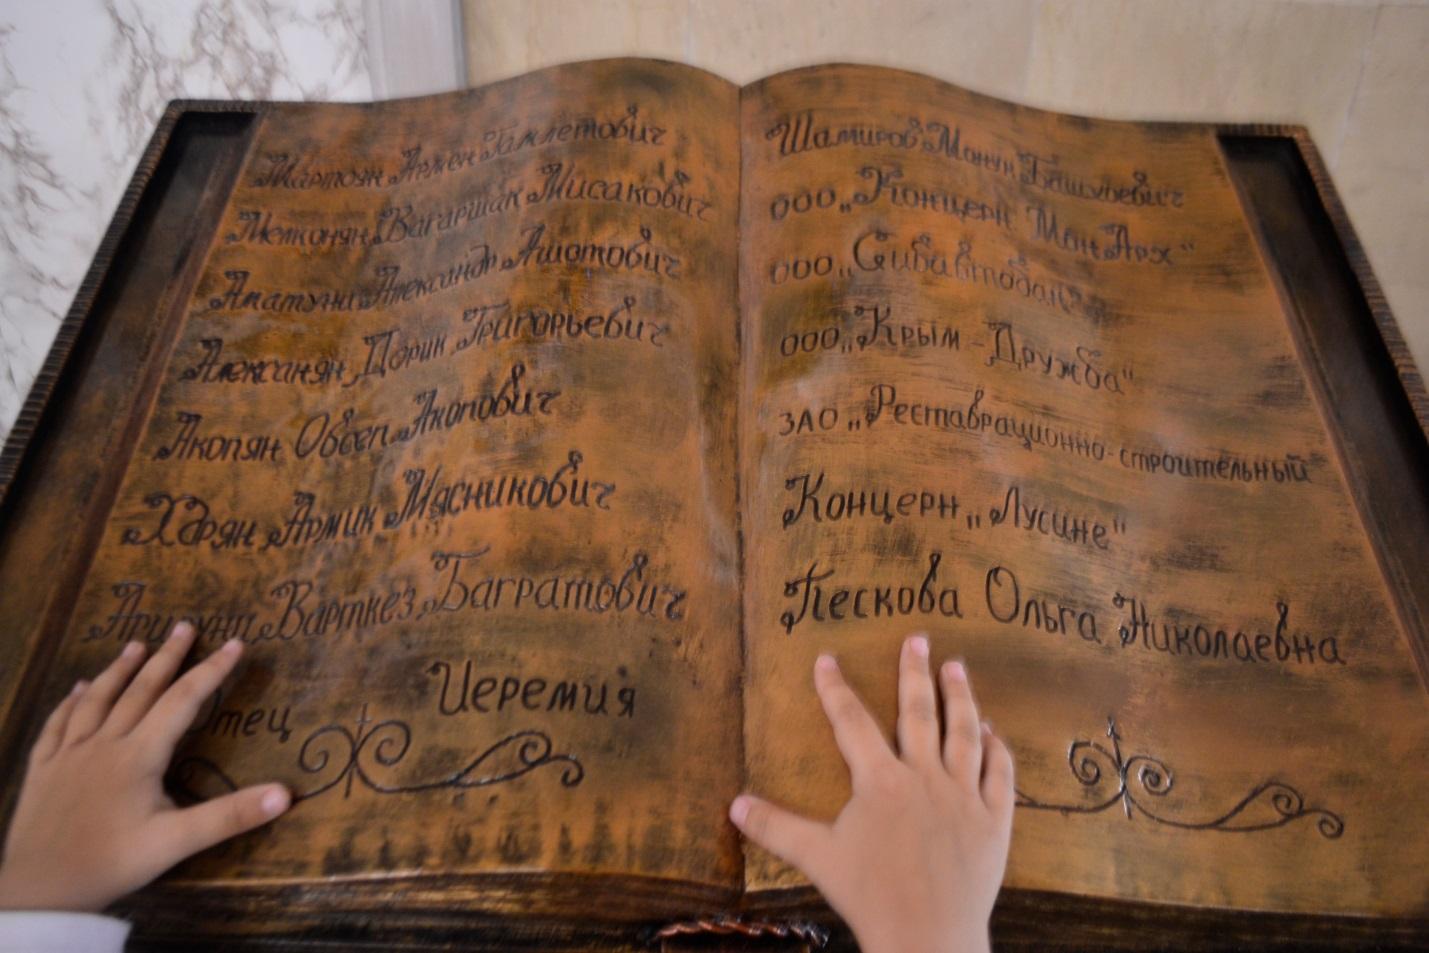 Мартоян Армен Гамлетович
Мелконян Вагаршак Мисакович
Аматуни Александр Ашотович
Алексанян Дорик Григорьевич
Акопян Овсеп Акопович
Хдрян Армик Мясникович
Варткез Багратович
Отец Иеремия
Шамиров Башубевич
ООО „Концерн МонАрх"
ООО „Сибавтобан"
ООО „Крым - Дружба"
ЗАО „Реставрационно-строительный
Концерн „Лусине"
Пескова Ольга Николаевна